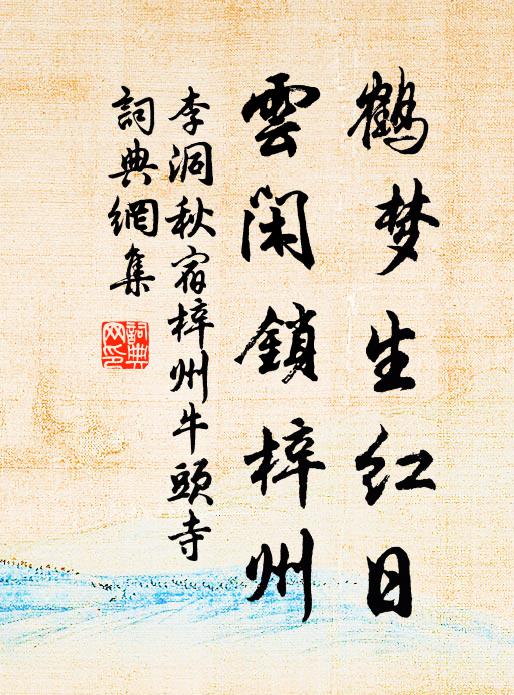 鹤梦生红日
雲闲鎖梓州
李洞秋宿梓州牛頭寺
詞典網集
詞典
网印